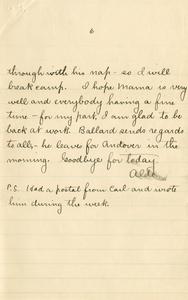 6
through with his nap - so I will
break camp. I hope Mama is very
well and everybody having a fine
time - for my part, I am glad to be
back at work. Ballard sends regards
to all - he leaves for Andover in the
morning. Goodbye for today.
P.S. Had a postal from Carl and wrote
him during the week.